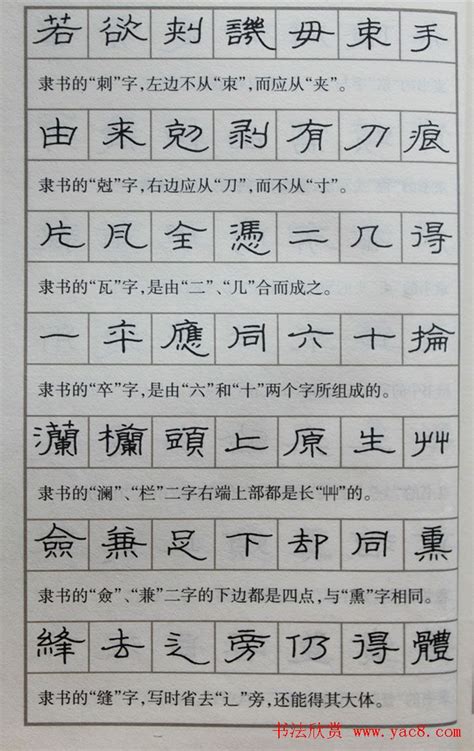 若欲刾譏毋束手
隶书的“刺”字,左边不从“束”,而应从“夹”。
由来剋剥有刀痕
隶书的“尅”字,右边应从“刀”,而不从“寸”。
片瓦全憑二几得
隶书的“瓦”字,是由“二”、“几”合而成之。
一卒應同六十掄
隶书的“卒”字,是由“六”和“十”两个字所组成的。
瀾欄頭上原生艸
隶书的“澜”、“栏”二字右端上部都是长“艸”的。
僉兼足下却同熏
隶书的“僉”、“兼”二字的下边都是四点,与“熏”字相同。
縫去辶旁仍得體
隶书的“缝”字,写时省去“辶”旁,还能得其大体。
书法欣赏 www.yac8.com